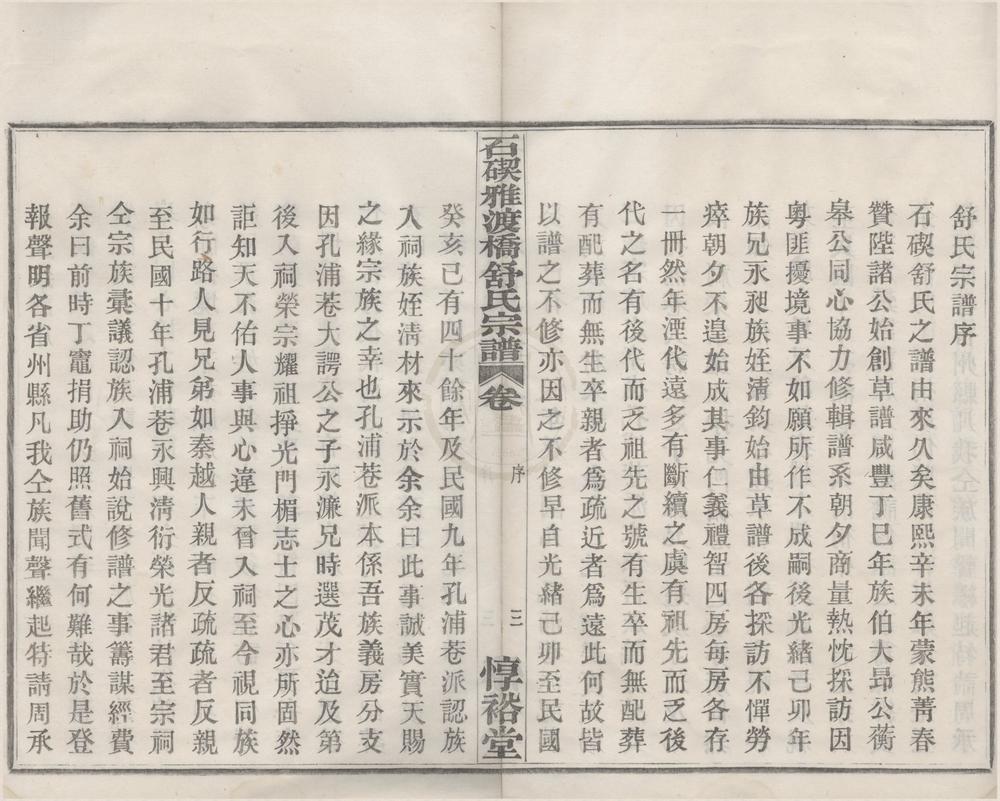 舒氏宗譜序
石碶舒氏之譜由來久矣康熙辛未年蒙熊菁春
贊陞諸公始創草譜咸豐丁巳年族伯大昻公蘅
皋公同心協力修輯譜系朝夕商量熱忱採訪因
粵匪擾境事不如願所作不成嗣後光緒己卯年
族兄永昶族姪清鈞始由草譜後各採訪不憚勞
瘁朝夕不遑始成其事仁義禮智四房每房各存
一冊然年湮代遠多有斷續之虞有祖先而乏後
代之名有後代而乏祖先之號有生卒而無配葬
有配葬而無生卒親者爲疏近者爲遠此何故皆
以譜之不修亦因之不修早自光緒己卯至民國
石碶雅渡橋舒氏宗譜 卷 序 三 惇裕堂
癸亥已有四十餘年及民國九年孔浦菴派認族
入祠族姪清材來示於余余曰此事誠美實天賜
之緣宗族之幸也孔浦菴派本係吾族義房分支
因孔浦菴大諤公之子永濂兄時選茂才迨及第
後入祠榮宗耀祖掙光門楣志士之心亦所固然
詎知天不佑人事與心違未曾入祠至今視同族
如行路人見兄弟如秦越人親者反疏疏者反親
至民國十年孔浦菴永興淸衍榮光諸君至宗祠
仝宗族彚議認族入祠始說修譜之事籌謀經費
余曰前時丁竈捐助仍照舊式有何難哉於是登
報聲明各省州縣凡我仝族聞聲繼起特請周承